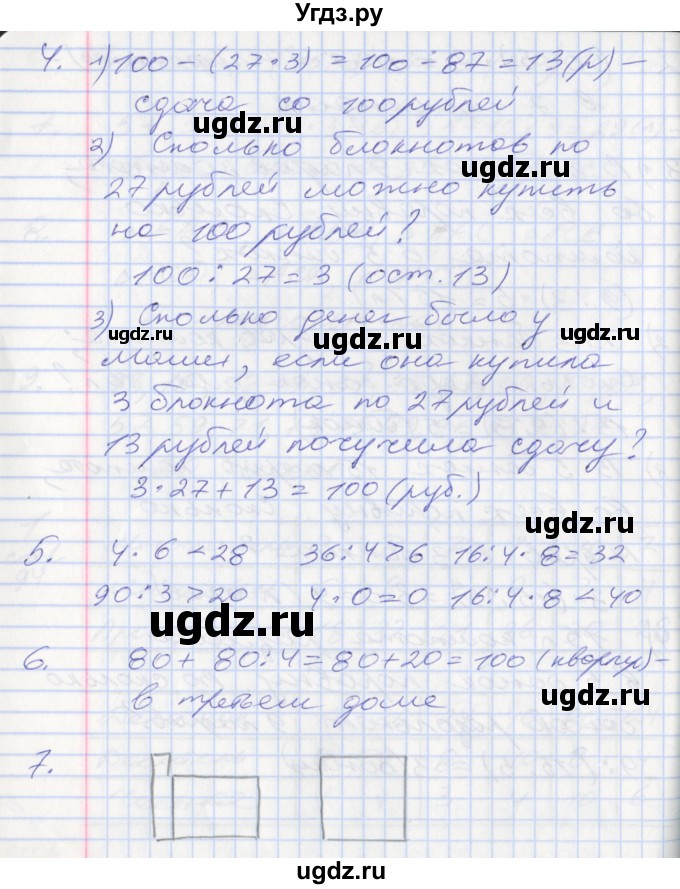 Угдз.ру
4. 1) 100 - (27·3) = 100 - 87 = 13 (р) -
сдача со 100 рублей
ugdz.ru ugdz.ru
2) Сколько блокнотов по
ugdz.ru
27 рублей можно купить
на 100 рублей?
100 : 27 = 3 (ост. 13)
3) Сколько денег было у
ugdz.ru ugdz.ru
Маши, если она купила
3 блокнота по 27 рублей и
13 рублей получила сдачу?
ugdz.ru
3·27 + 13 = 100 (руб.)
5. 4·6 < 28 36:4 > 6 16:4·8 = 32
90:3 > 20 4·0 = 0 16:4·8 < 40
ugdz.ru ugdz.ru
6. 80 + 80:4 = 80 + 20 = 100 (квартир) -
в третьем доме
ugdz.ru
7.
ugdz.ru
ugdz.ru